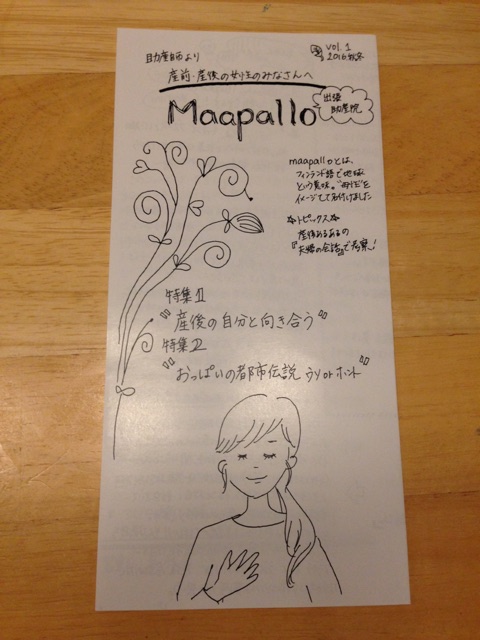 助産師より
vol.1
2016 秋冬
産前・産後の女性のみなさんへ
Maapallo
出張
助産院
maapalloとは、
フィンランド語で地球
という意味。"母性"を
イメージして名付けました
☆トピックス☆
産後あるあるの
『夫婦の会話』で考察!
特集1
"産後の自分と向き合う"
特集2
"おっぱいの都市伝説 ウソorホント"